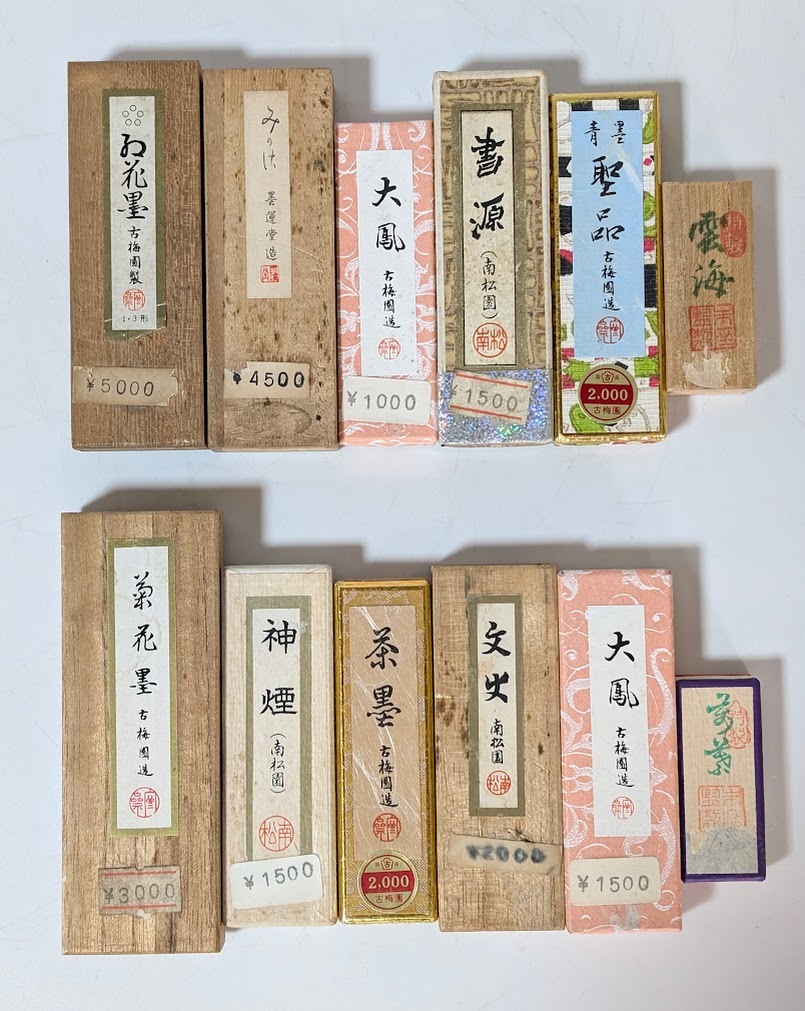 紅花墨
古梅園製
1・3形
¥5000
みの汁
墨運堂造
¥4500
大鳳
古梅園造
¥1000
書源
(南松園)
南松
¥1500
青墨
聖品
古梅園造
古
2.000
古梅園
雲海
菊花墨
古梅園造
¥3000
神煙
(南松園)
南松
¥1500
茶墨
古梅園造
古
2.000
古梅園
文史
南松園
南松
¥2000
大鳳
古梅園造
¥1500